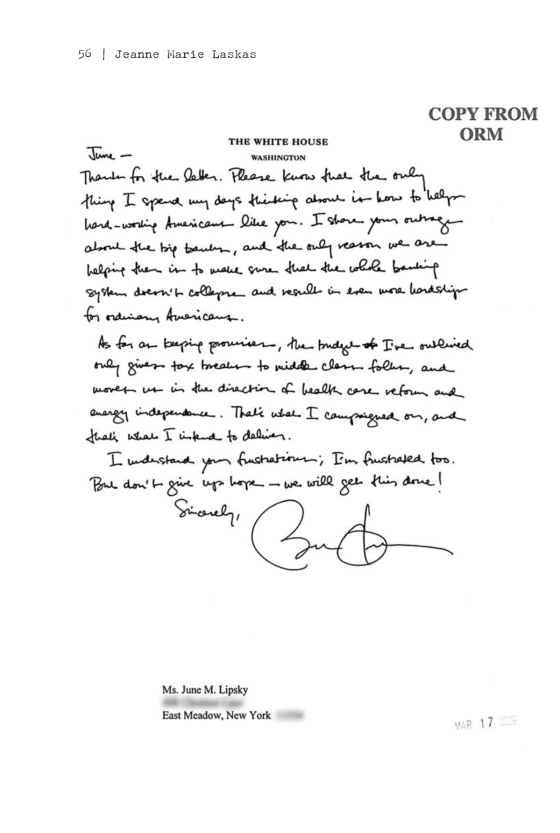 56 | Jeanne Marie Laskas
COPY FROM
ORM
THE WHITE HOUSE
WASHINGTON
June —
Thanks for the letter. Please know that the only
thing I spend my days thinking about is how to help
hard-working Americans like you. I share your outrage
about the big banks, and the only reason we are
helping them is to make sure that the whole banking
system doesn't collapse and result in even more hardship
for ordinary Americans.
As far as keeping promises, the budget I've outlined
only gives tax breaks to middle class folks, and
moves us in the direction of health care reform and
energy independence. That's what I campaigned on, and
that's what I intend to deliver.
I understand your frustrations; I'm frustrated too.
But don't give up hope — we will get this done!
Sincerely,
Ms. June M. Lipsky
East Meadow, New York
MAR 17 2009